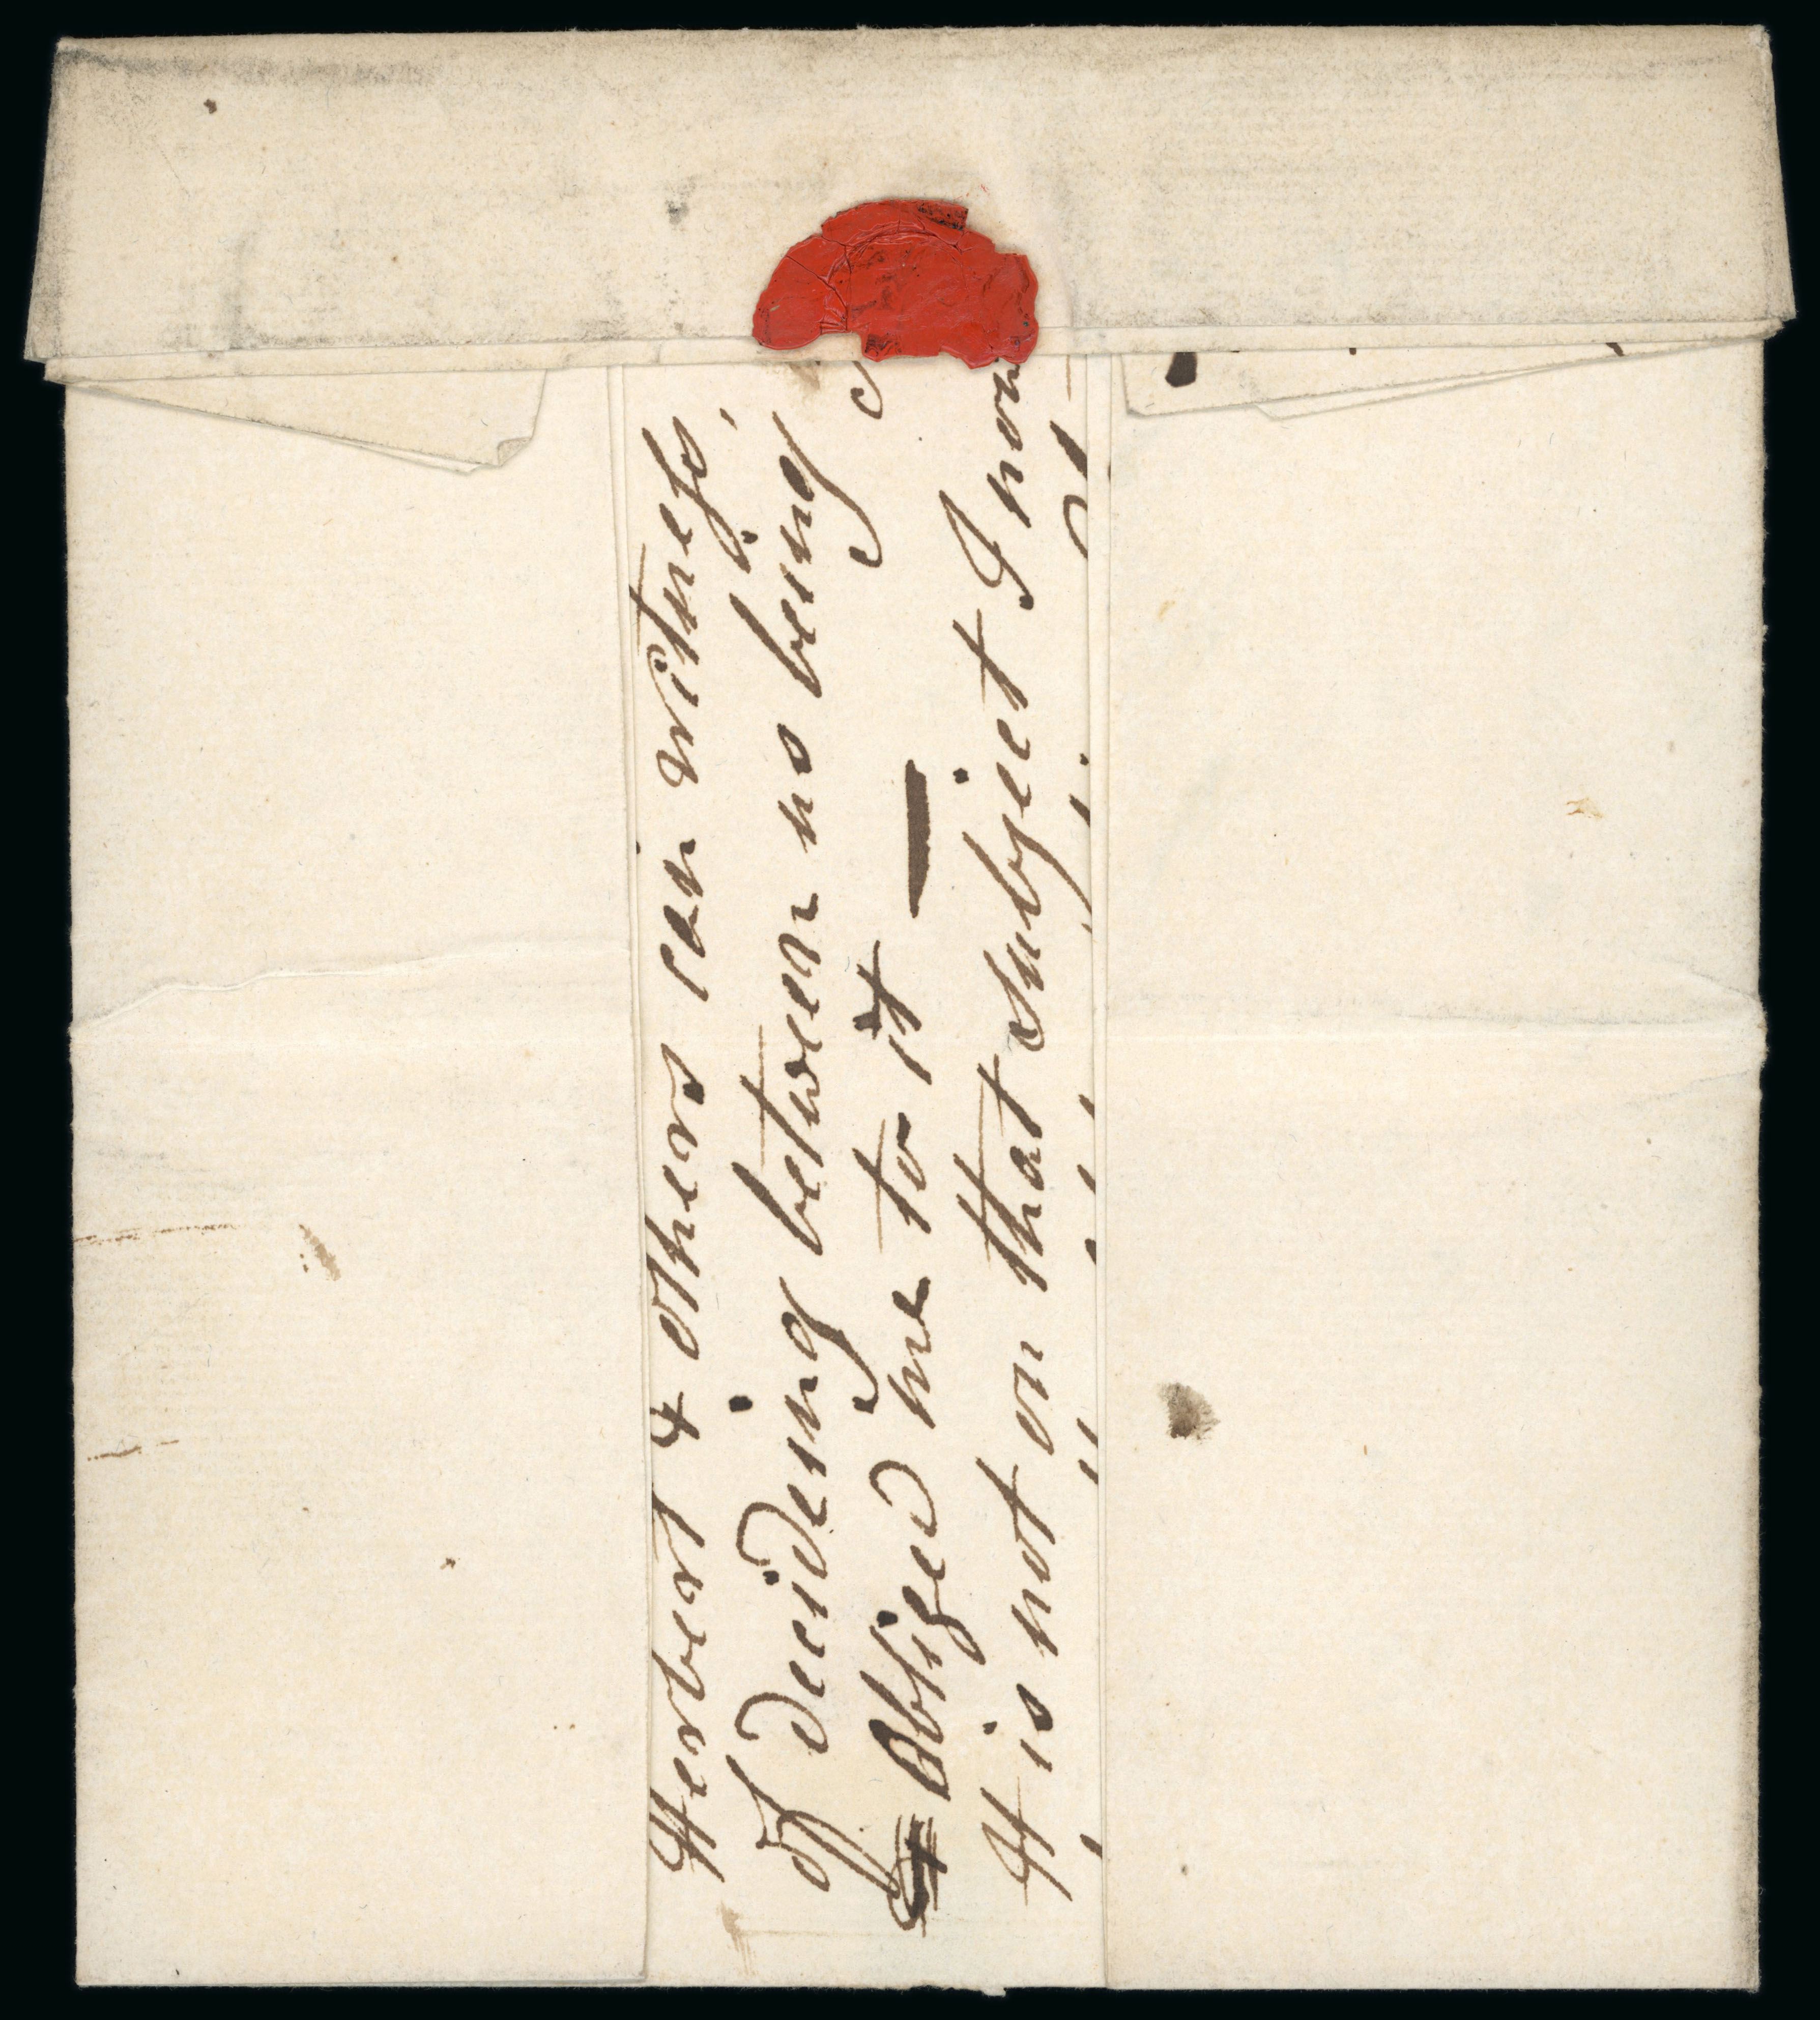 Herbert & others can witness,
of deciding between us being
Obliged me to it —
It is not on that subject I now